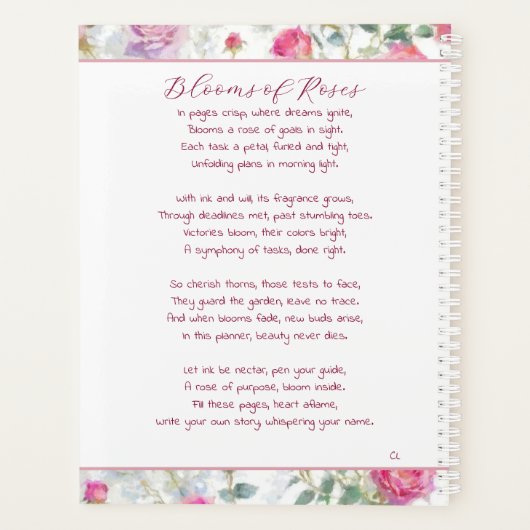 Blooms of Roses
In pages crisp, where dreams ignite,
Blooms a rose of goals in sight.
Each task a petal, furled and tight,
Unfolding plans in morning light.
With ink and will, its fragrance grows,
Through deadlines met, past stumbling toes.
Victories bloom, their colors bright,
A symphony of tasks, done right.
So cherish thorns, those tests to face,
They guard the garden, leave no trace.
And when blooms fade, new buds arise,
In this planner, beauty never dies.
Let ink be nectar, pen your guide,
A rose of purpose, bloom inside.
Fill these pages, heart aflame,
Write your own story, whispering your name.
CL